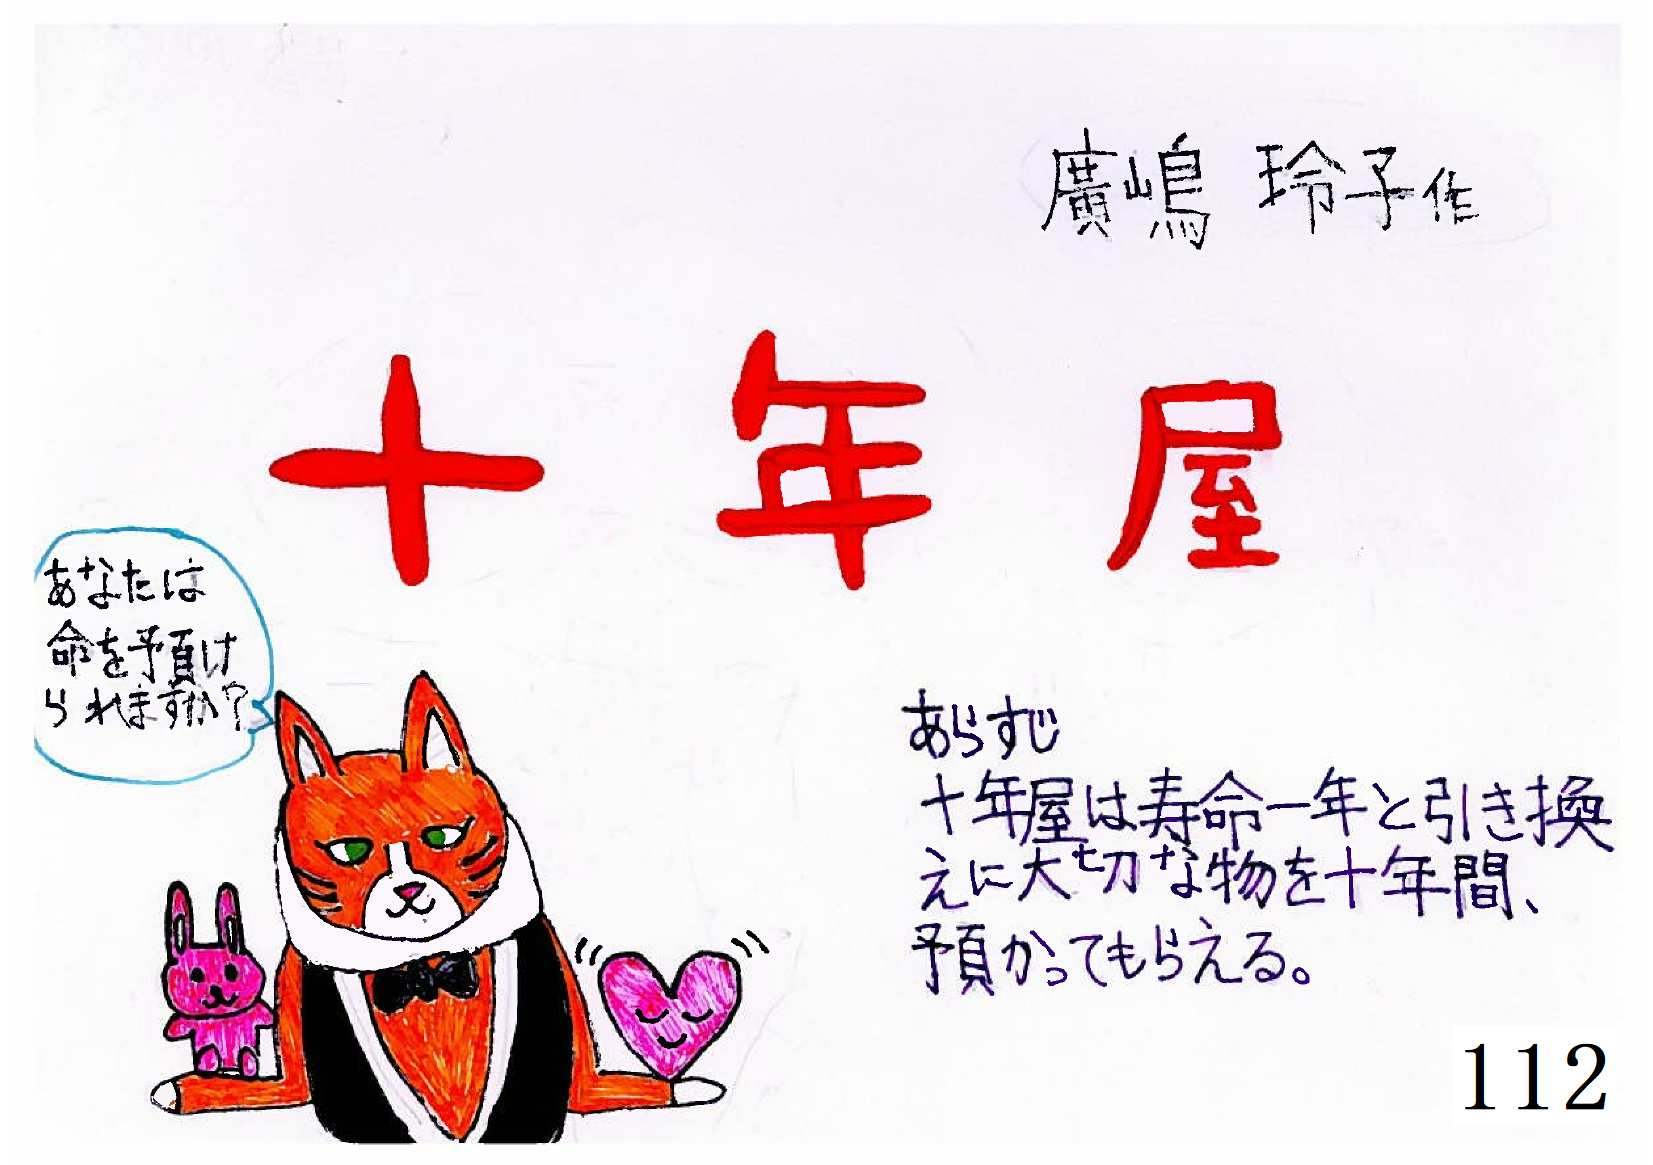 廣嶋 玲子作
十年屋
あなたは
命を予頁け
られますか?
あらすじ
十年屋は寿命一年と引き換
えに大切な物を十年間、
預かってもらえる。
112